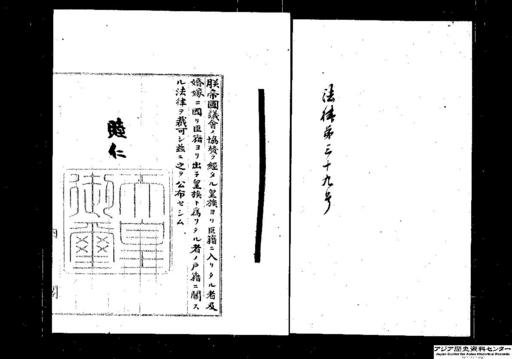 法律第三十九号
朕帝國議會ノ協賛ヲ經タル皇族ヨリ臣籍ニ入リタル者及
婚嫁ニ因リ臣籍ヨリ出テ皇族ト爲リタル者ノ戸籍ニ關ス
ル法律ヲ裁可シ茲ニ之ヲ公布セシム
睦仁
天皇
御璽
内
閣
アジア歴史資料センター
Japan Center for Asian Historical Records